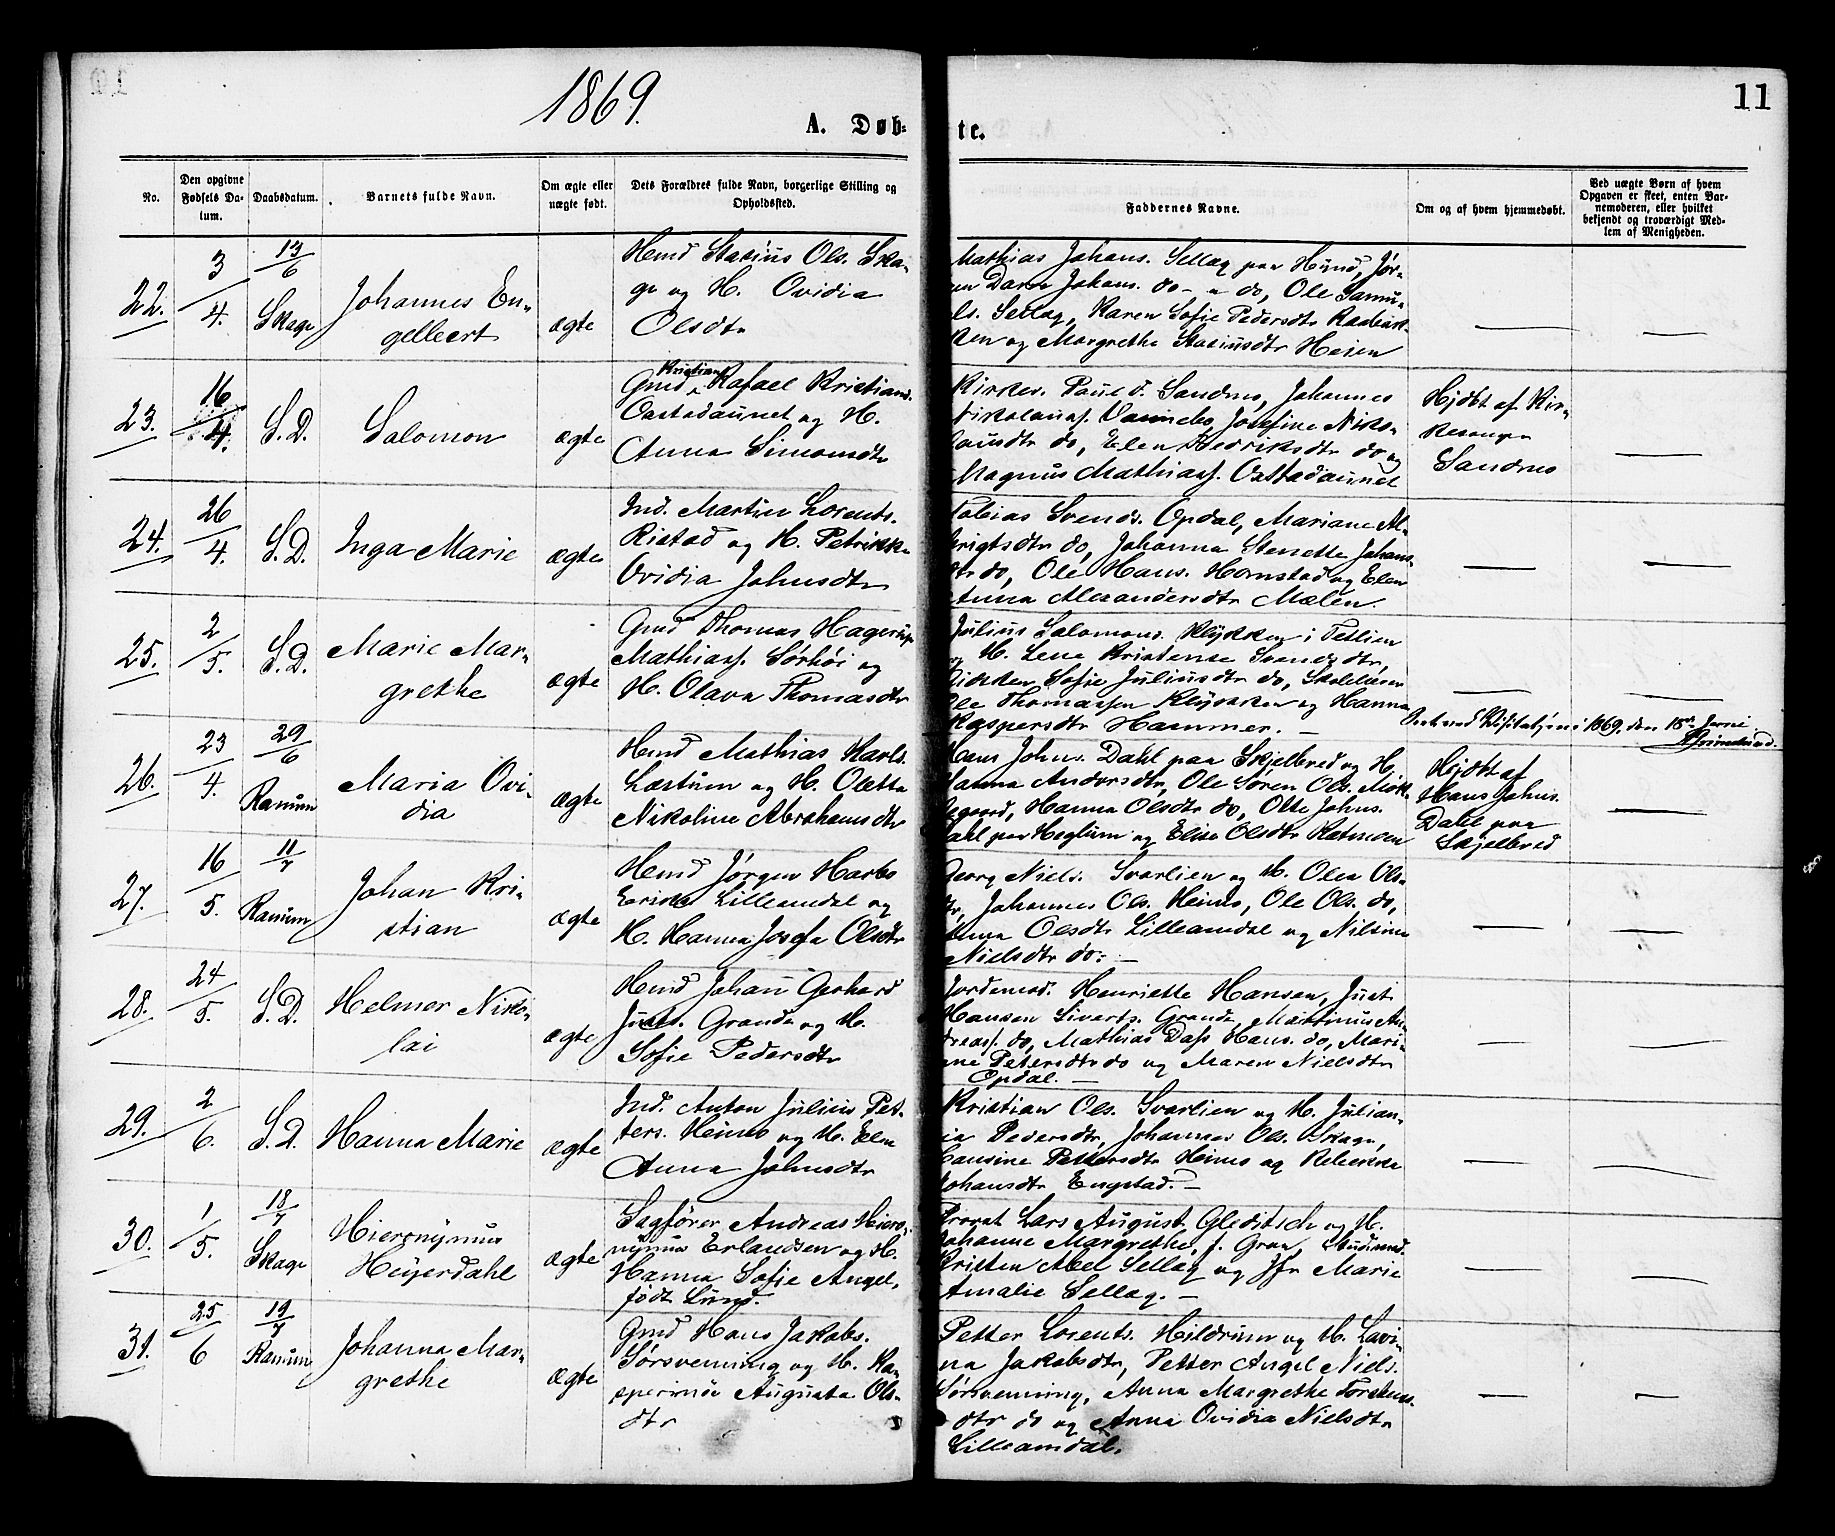 1869.
11
A. Døb- te.
No.
Den opgivne Fødsels Da- tum.
Daabsdatum.
Barnets fulde Navn.
Om ægte eller uægte født.
Dets Forældres fulde Navn, borgerlige Stilling og Opholdssted.
Faddernes Navne.
Om og af hvem hjemmedøbt.
Ved uægte Børn af hvem
Opgaven er skeet, enten Bar-
nemoderen, eller hvilket
bekjendt og troværdigt Med-
lem af Menigheden.
22. 3/4. 13/6 Skage
Johannes En-
gellbert
ægte
Hmd Stasius Ols. Ska-
ge og H. Ovidia
Olsdtr
Mathias Johans. Sellæg paa Hund, Jør-
en Dama Johans. do - " do, Ole Samu-
ls. Sellæg, Karen Sofie Pedersdtr
ken og Margrethe Stasiusdtr Heien
23. 16/4. S.D.
Salomon
ægte
Gmd Kristian Rafael Kristians.
Oastadaunet og H.
Anna Simonsdtr
Kirkes. Paul d. Sandnes, Johannes
Nikolaus. Vannebo, Josefine Niko-
lausdtr do, Elen Hedriksdtr do og
Magnus Mathiass. Oastadaunet
Hjdbt af Kir-
kesanger
Sandnes
24. 26/4. S.D.
Inga Marie
ægte
Ind. Martin Lorents.
Ristad og H. Petrikke
Ovidia Johnsdtr
Tobias Svends. Opdal, Mariane Al-
brigtsdtr do, Johanna Stenette Johans
dtr do, Ole Hans. Homstad og Elen
Anna Alexandersdtr Mælen.
25. 2/5. S.D.
Marie Mar-
grethe
ægte
Gmd Thomas Hagerup
Mathiass. Sørhøi og
H. Olava Thomasdtr
Julius Salomons. Klykken i Tetlien
og H. Lene Kristense Svendsdtr,
Rikken Sofie Juliusdtr do, Skolelærer
Ole Thomassen Klykken og Hanna
Kaspersdtr Hammer. -
ved Visitatsen i 1869, den 18de Juni
Grimelund.
26. 23/4. 29/6 Ranum
Maria Ovi-
dia
ægte
Hmd Mathias Karls.
Læstum og H. Oletta
Nikoline Abrahamsdtr
Hans Johns. Dahl paa Skjelbred og H.
Hanna Andersdtr, Ole Søren Ols. Møk-
legaard, Hanna Olsdtr do, Otte Johns.
Dahl paa Heglum og Elise Olsdtr Ratmoen
Hjdbt af
Hans Johns.
Dahl paa
Skjelbred
27. 16/5. 11/7 Ranum
Johan Kri-
stian
ægte
Hmd Jørgen Harbo
Eeriks. Lilleamdal og
H. Hanna Josefa Olsdtr
Georg Niels. Svarlien og H. Olea Ols-
dtr, Johannes Ols. Heimo, Ole Ols. do,
Anna Olsdtr Lilleamdal og Nilsine
Nielsdtr do. -
28. 24/5. S.D.
Helmer Niko-
lai
ægte
Hmd Johan Gerhard
Justs. Grande og H.
Sofie Pedersdtr
Jordemod. Henriette Hansen, Just
Hansen Siverts. Grande, Martinus An-
dreass. do, Mathias Dass Hans. do, Mari-
ane Petersdtr do og Maren Nielsdtr
Opdal. -
29. 2/6. S.D.
Hanna Marie
ægte
Ind. Anton Julius Pet-
ters. Heimo og H. Elen
Anna Johnsdtr
Kristian Ols. Svarlien og H. Julian-
na Pedersdtr, Johannes Ols. Skage,
Hansine Pettersdtr Heimo og Rebekka
Johansdtr Engstad. -
30. 1/5. 18/7 Skage
Hieronymus
Heyerdahl
ægte
Sagfører Andreas Hiero-
nymus Erlandsen og H.
Hanna Sofie Angel,
født Lund.
Provst Lars August Gleditsch og H.
Johanne Margrethe, f. Gran, Studiosus.
Kristen Abel Sellæg og Jfr Marie
Amalie Sellæg. -
31. 25/6 19/7 Ranum
Johanna Mar-
grethe
ægte
Gmd Hans Jakobs.
Sørsvenning og H. Ka-
sperinöe Augusta Ols-
dtr
Petter Lorents. Hildrum og H. Lavi-
na Jakobsdtr, Petter Angel Niels.
Sørsvenning, Anna Margrethe Torstens-
dtr do og Anna Ovidia Nielsdtr
Lilleamdal.